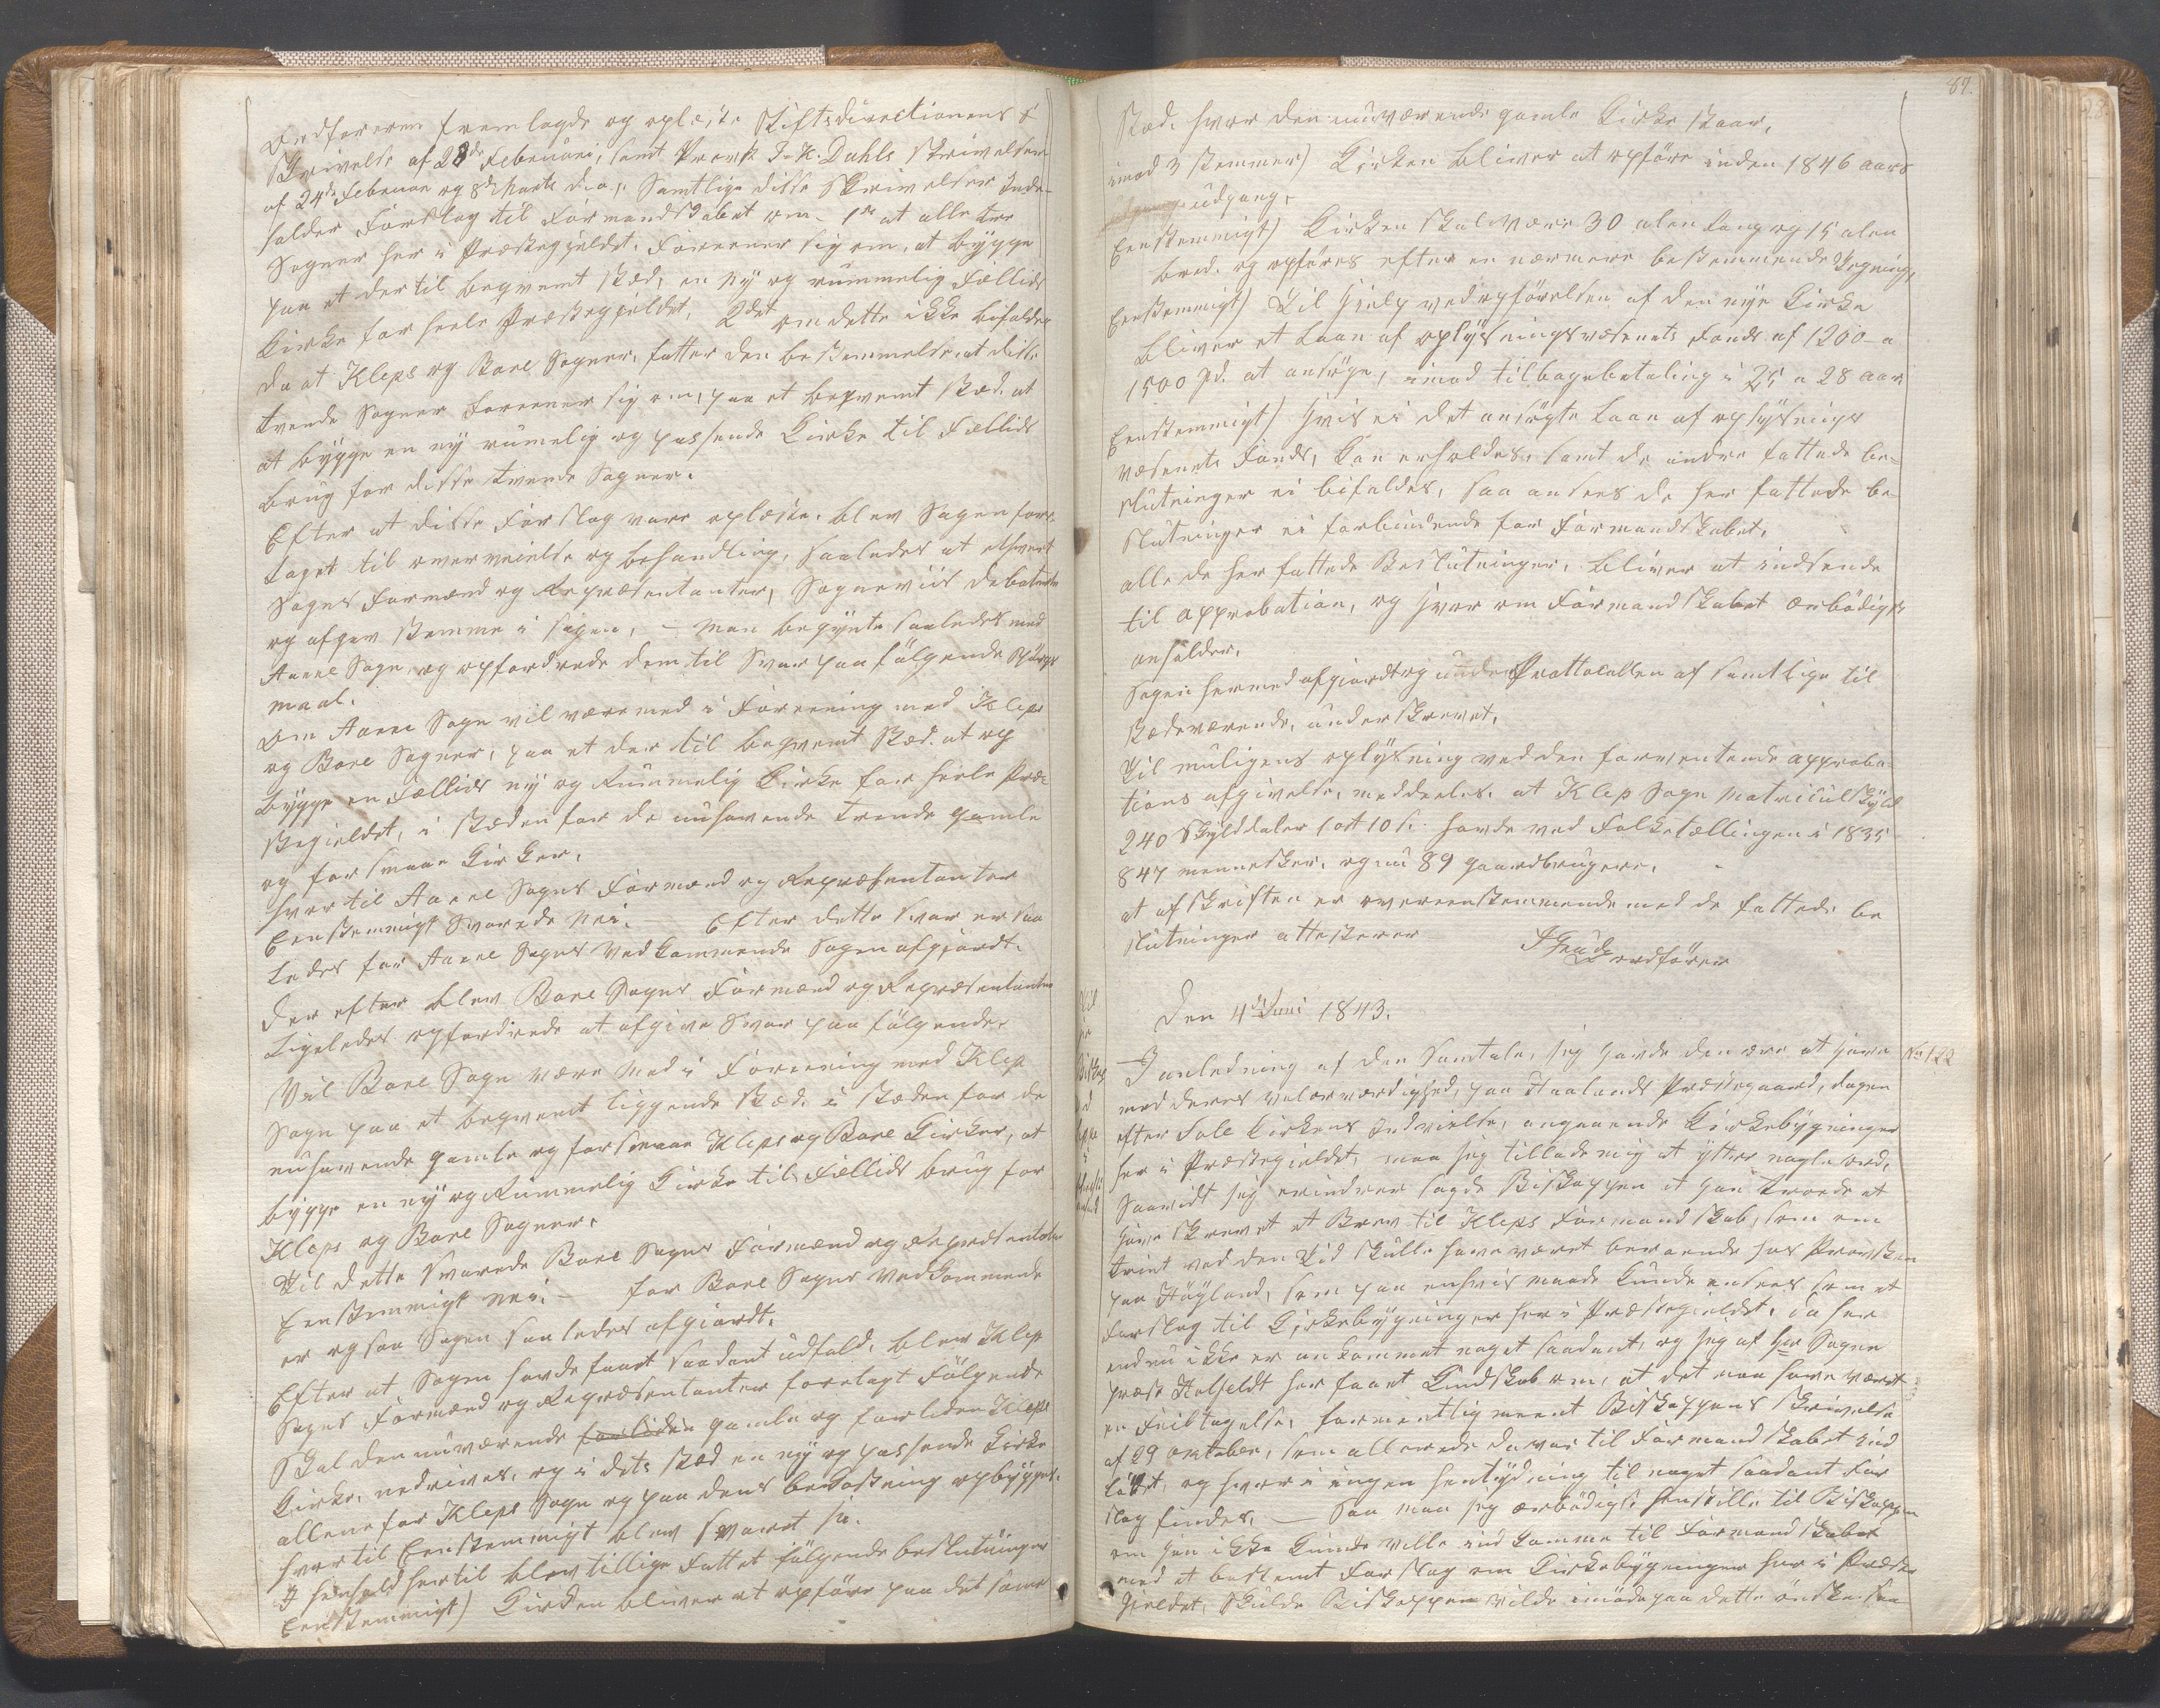 Ordføreren fremlagde og oplæste Stiftsdirectionens
Skrivelse af 28de Februari, samt Provst J. K. Dahls Skrivelser
af 24de Februar og 8de Marts d. a., Samtlige disse Skrivelser Inde-
holder Forslag til Formandskabet om. 1ste at alle tre
Sogner her i Præstegjeldet, foreener sig om, at bygge
paa et dertil beqvemt Stæd, en ny og rummelig Fællids
Kirke for heele Præstegjeldet, 2det om dette ikke bifaldes
da at Kleps og Bore Sogner, fatter den bestemmelse at disse
tvende Sogner foreener sig om, paa et beqvemt Stæd at
at bygge en ny rumelig og passende Kirke til Fællids
brug for disse tvende Sogner.
Efter at disse Forslag vare oplæste, blev Sagen fore-
taget til overveielse og behandling, saaledes at ethvert
Sogns Formænd og Repræsentanter, Sogneviis debaterte
og afgav Stemme i sagen, – man begynte saaledes med
Aarre Sogn, og opfordrede dem til Svar paa følgende Spørgs
maal.
Om Aarre Sogn vil være med i Foreening med Kleps
og Bore Sogner, paa et der til beqvemt Stæd at op
bygge en Fællids ny og Rummelig Kirke for heele Præ-
stegieldet, i Stæden for de nuhavende trende gamle
og for smaae Kirker.
Hvor til Aarre Sogns Formænd og Repræsentanter
Eenstemmigt Svarede Nei. – Efter dette Svar er saa
ledes for Aarre Sogns Vedkommende Sagen afgjordt.
Der efter blev Bore Sogns Formænd og Repræsentanter
Ligeledes opfordrede at afgive Svar paa følgende.
Vil Bore Sogn være Med i Foreening med Klep
Sogn paa et beqvemt liggende Stæd, i Stæden for de
nuhavende gamle og for smaae Kleps og Bore Kirker, at
bygge en ny og Rummelig Kirke til Fællids brug for
Kleps og Bore Sogner.
Til dette Svarede Bore Sogns Formænd og Repræsentanter
Eenstemmigt Nei. – for Bore Sogns Vedkommende
er ogsaa Sagen saaledes afgiordt.
Efter at Sagen havde faaet saadant udfald, blev Klep
Sogns Formænd og Repræsentanter forelagt Følgende
Skal den nuværende forliden gamle og forliden Kleps
Kirke, nedrives, og i dets Stæd en ny og passende Kirke
allene for Kleps Sogn og paa dens bekostning opbygges.
hvortil Eenstemmigt blev Svaret Ja.
I henhold hertil blev tillige Fattet følgende beslutninger
Eenstemmigt) Kirken bliver at opføre paa det samme
87.
Stæd, hvor den nuværende gamle Kirke staar,
imod 3 Stemmer) Kirken bliver at opføre inden 1846 aars
udgang,
Eenstemmigt) Kirken skal være 30 alen lang og 15 alen
bred, og opføres efter en nærmere bestemmende Tegning,
Eenstemmigt) Til Hjelp ved opførelsen af den nye Kirke
bliver et Laan af oplysningsvæsenets Fonds af 1200 a
1500 Spd. at ansøge, imod tilbagebetaling i 25 a 28 aar
Eenstemmigt) Hvis ei det ansøgte Laan af oplysnings
væsenets Fonds, kan erholdes, samt de andre fattede be-
slutninger ei bifaldes, saa ansees de her fattede be
slutninger ei forbindende for Formandskabet,
alle de her fattede Beslutninger, bliver at indsende
til approbation, og hvor om Formandskabet ærbødigst
anholder.
Sagen hermed afgjordt og under Prottocollen af samtlige til
stædeværende, underskrevet.
Til muligens oplysning ved den forventende approba-
tions afgivelse, meddeeles, at Klep Sogn Matriculskyld
240 Skylddaler 1 ort 10 s. havde ved Folketællingen i 1835
847 mennesker, og nu 89 gaardbrugere.
at afskriften er overeenstemmende med de fattede be
slutninger atesterer
Ordfører
Den 4de Juni 1843.
I anledning af den Samtale, jeg havde den ære at have
No 122
med deres velærværdighed, paa Haalands Præstegaard, dagen
efter Sole Kirkens Indvielse, angaaende Kirkebygninger
her i Præstegieldet, maa jeg tillade mig at ytter nogle ord,
Saavidt jeg erindrer sagde Biskoppen at han troede at
have skrevet et Brev til Kleps Formandskab, som om
trint ved den Tid skulle have været beroende hos Provsten
paa Høyland, som paa enhvis maade kunde ansees som et
Forslag til Kirkebygninger her i Præstegieldet. Da her
endnu ikke er ankommet noget saadant, og jeg af Hr Sogne
præst Hatfeldt her faaet kundskab om, at det maa have været
en Feiltagelse, formentlig meent Biskoppens Skrivelse
af 29 October, som allerede da var til Formandskabet ind
løbet, og hvor i ingen hentydning til noget saadant For
slag findes. – Saa maa jeg ærbødigst henstille til Biskoppen
om han ikke kunde ville indkomme til Formandskabet
med et bestemt Forslag om Kirkebygninger her i Præste
Gieldet, skulde Biskoppen vilde imødepaa dette ønske saa